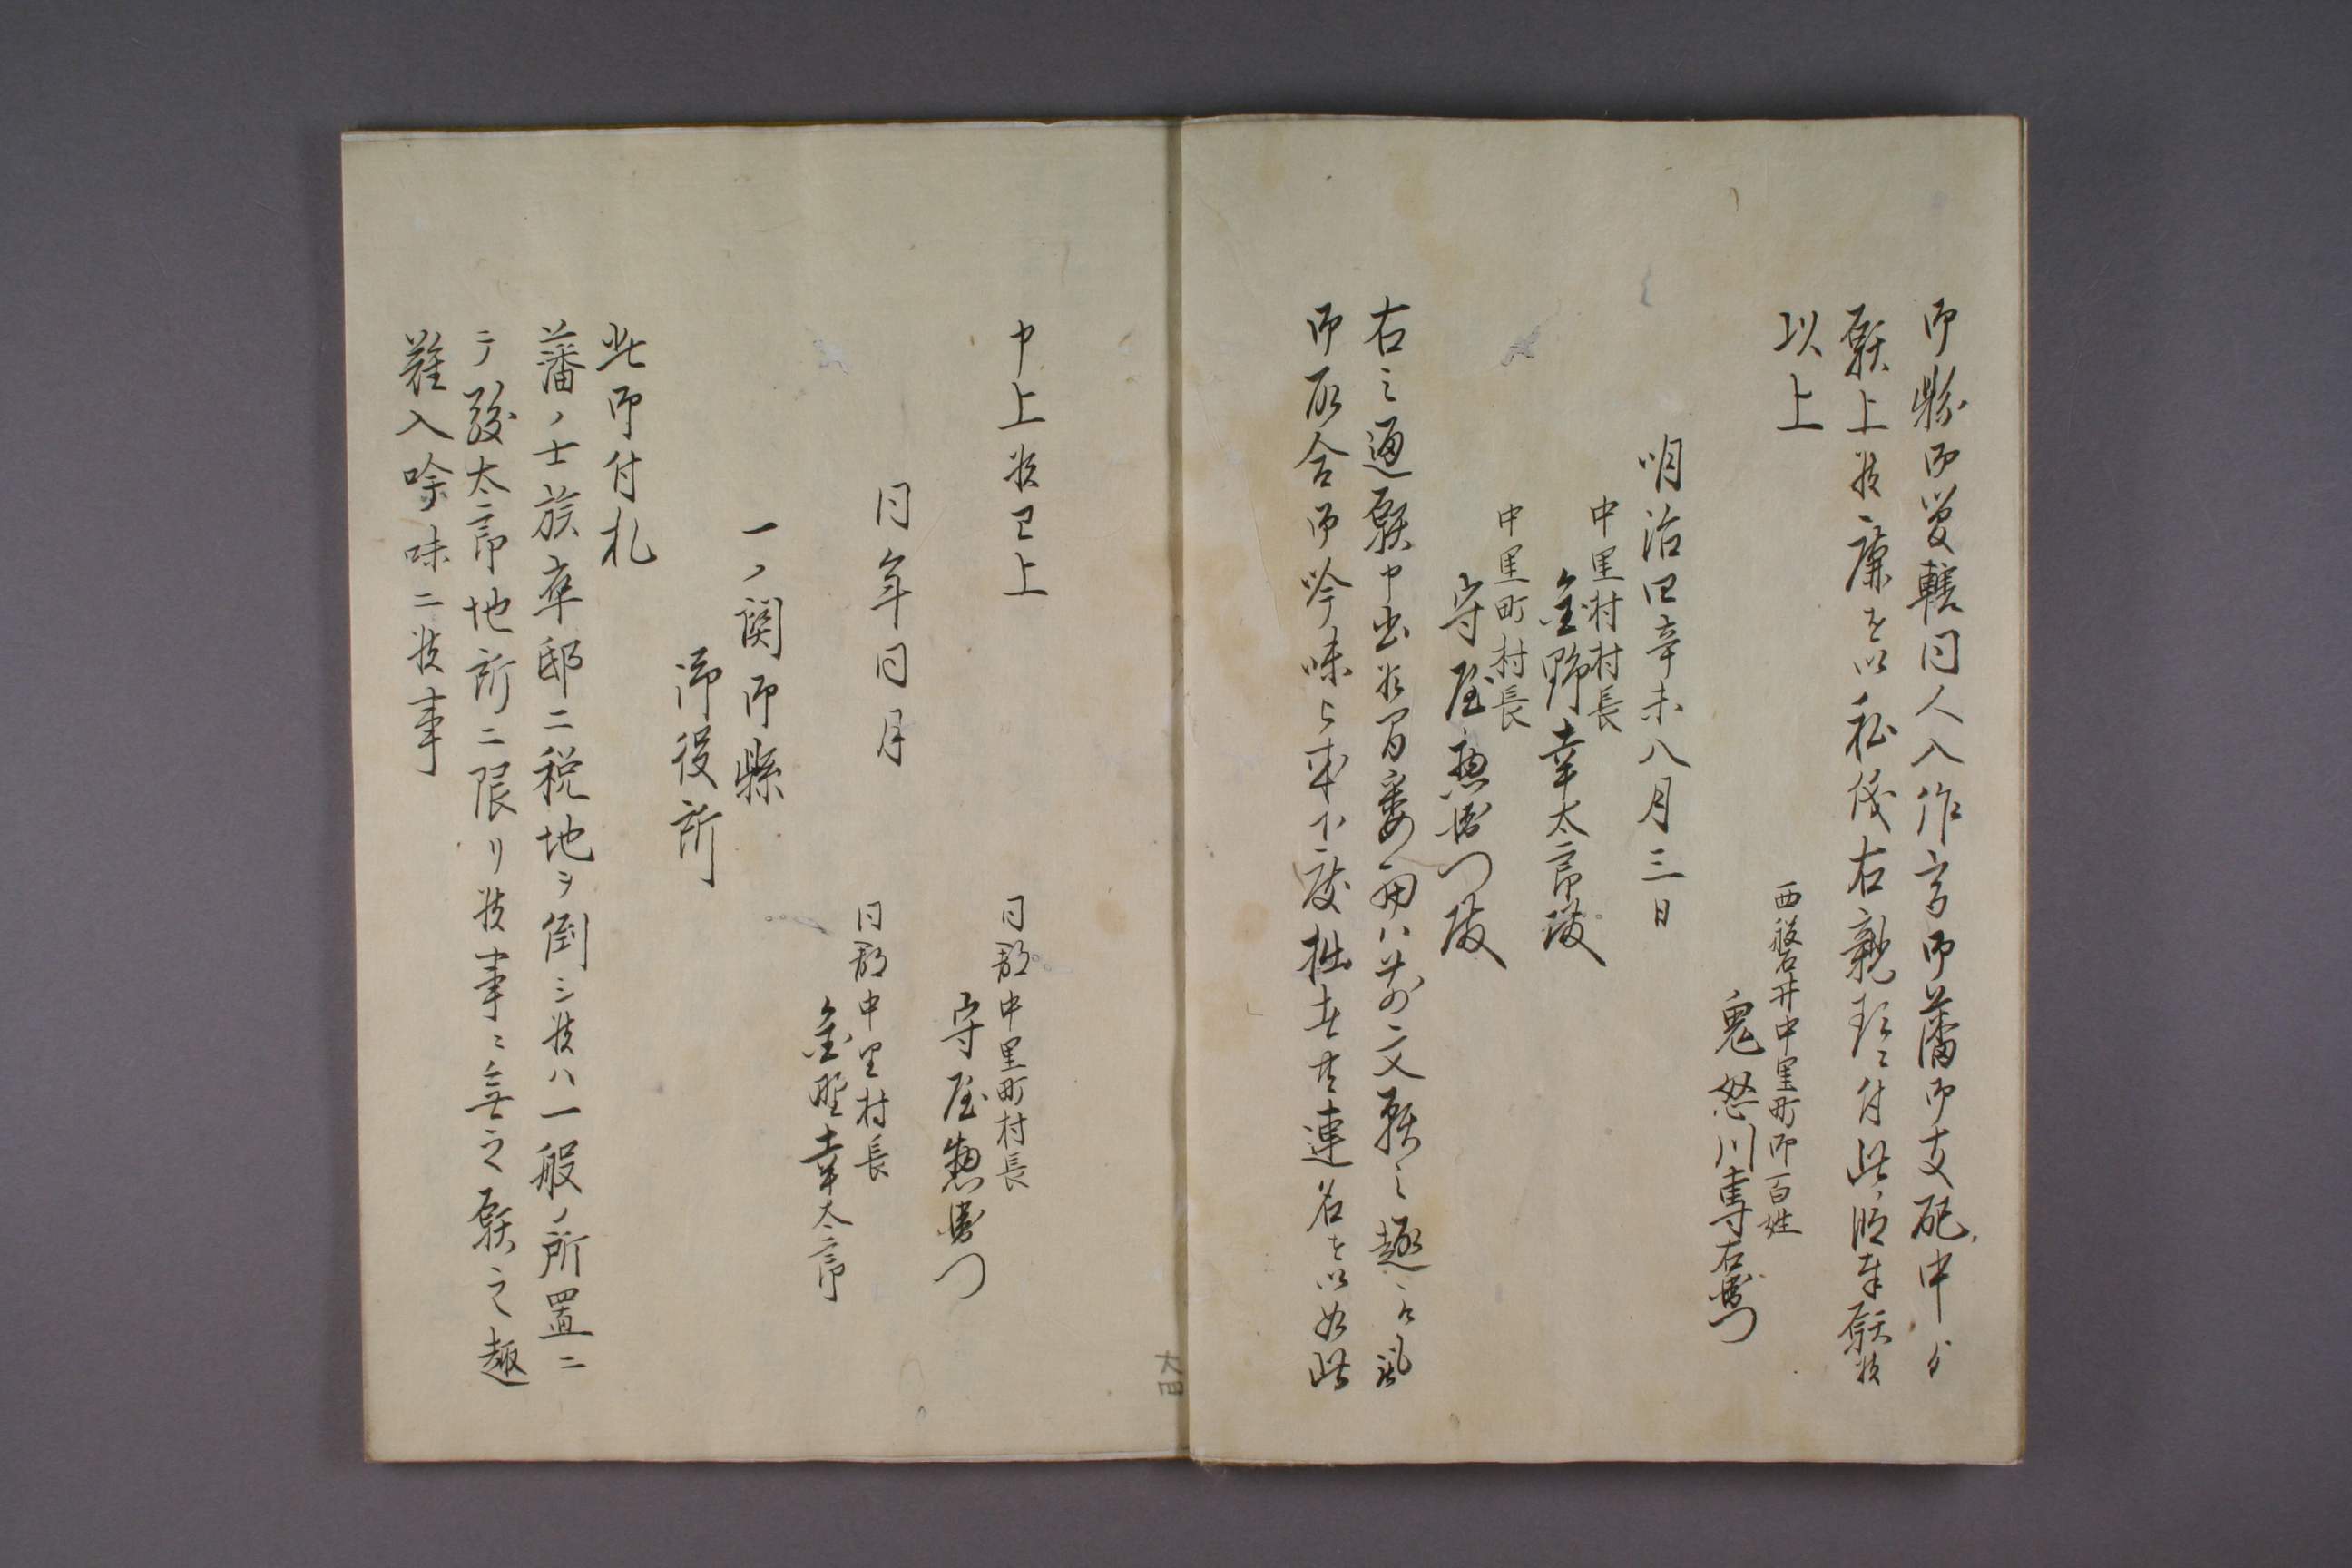 御縣御管轄同人入作高御藩御支配中ゟ
願上候廉を以私儀右親類ニ付此段奉願候
以上
西磐井中里町御百姓
鬼怒川壽右衛門
明治四辛未八月三日
中里村村長
金野幸太郎殿
中里町村長
守屋惣衛門殿
右之通願申出候間委細ハ前文願之趣ニ
御取合御吟味被成下度拙者共連名を以如此
申上候已上
同郡中里町村長
守屋惣衛門
同郡中里村長
金野幸太郎
同年同月
一ノ関御縣
御役所
此御付札
藩ノ士族卒邸ニ税地ヲ倒シ候ハ一般ノ所置ニ
テ發太郎地所ニ限リ候事ニ無之願之趣
難入唫味ニ候事